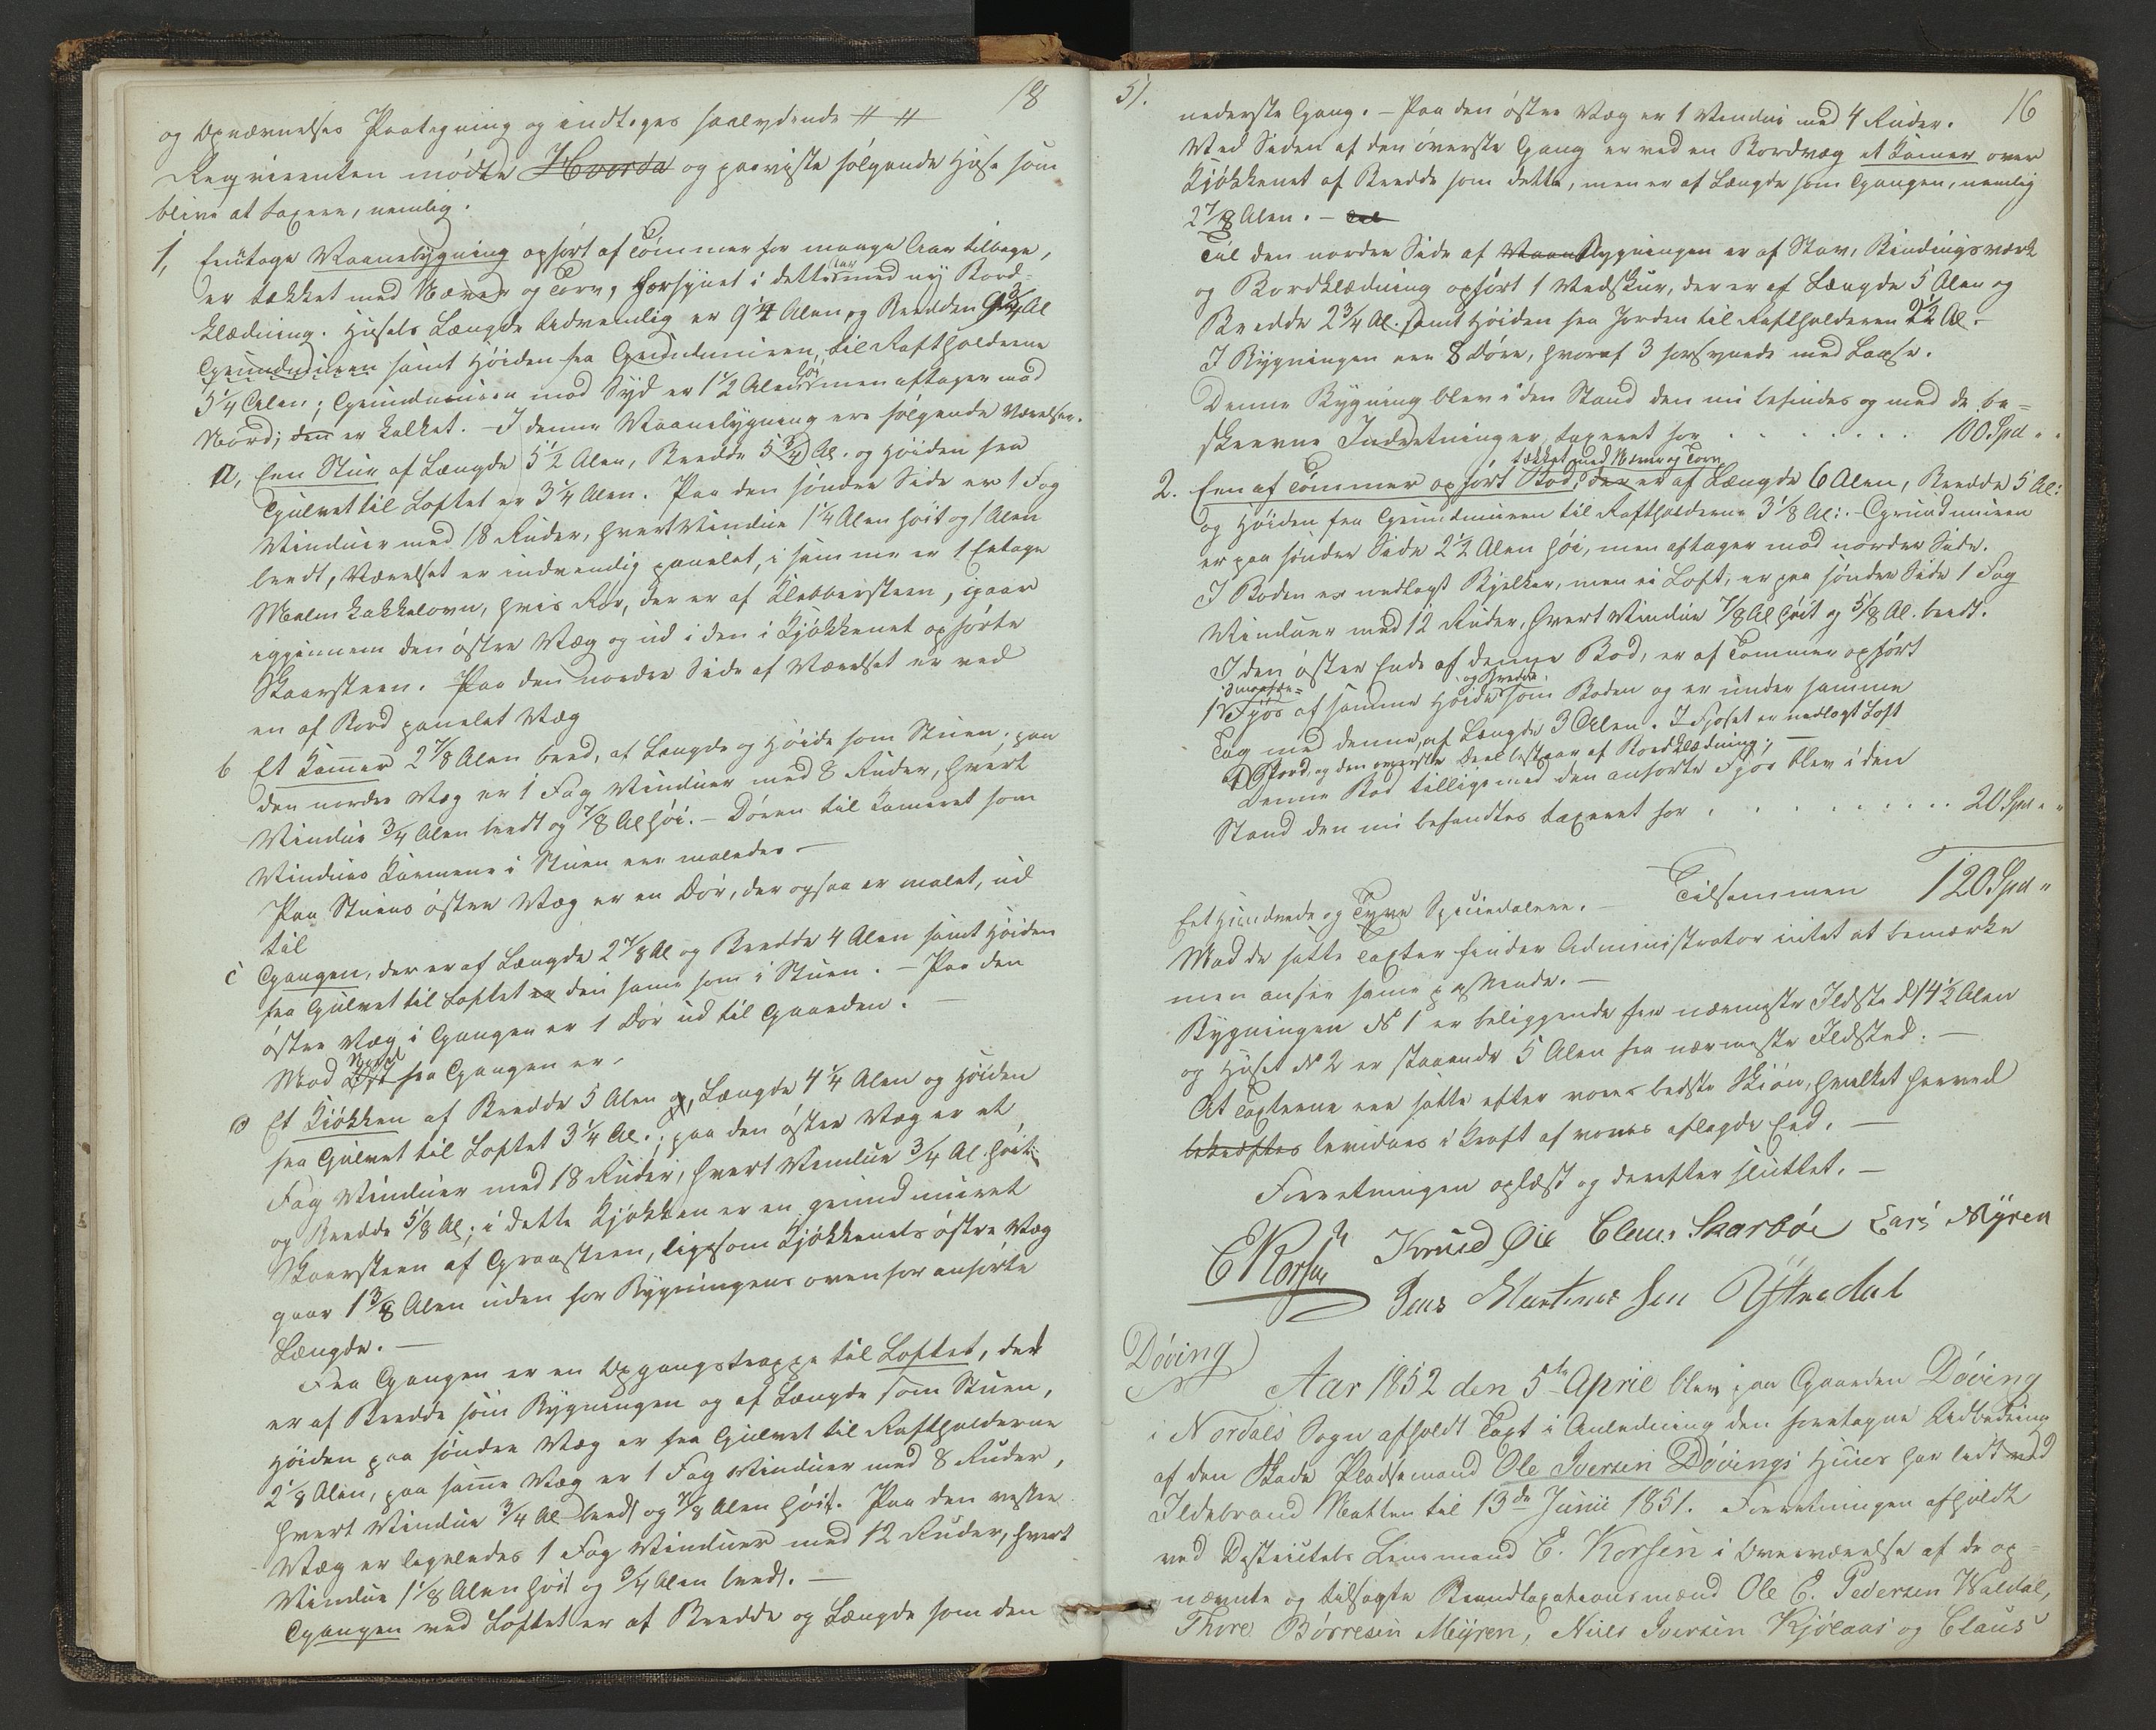 18
og Opnævnelses Paategning og indtages saalydende # #
Reqvirenten mødte Hvorda og paaviste følgende Huse som
blive at taxere, nemlig.
1, Een Etage Vaanebygning opført af Tømmer for mange Aar tilbage,
er tækket med Næver og Torv, forsynet i dette Aar med ny Bord-
klædning. Husets Længde udvendig er 9 1/4 Alen og Bredden 9 3/4 Al
Grundmuren samt Høiden fra Grundmuren, til Raftholderne
5 1/4 Alen; Grundmuren mod Syd er 1 1/2 Alen høi men aftager mod
Nord; den er kalket. - I denne Vaanebygning ere følgende Værelser.
a, Een Stue af Længde 5 1/2 Alen, Bredde 5 3/4 Al. og Høiden fra
Gulvet til Loftet er 3 1/4 Alen. Paa den søndre Side er 1 Fag
Vinduer med 18 Ruder, hvert Vindue 1 1/4 Alen høit og 1 Alen
bredt, Værelset er indvendig panelet, i samme er 1 Etages
Malm Kakkelovn, hvis Rør, der er af Klebbersteen, gaar
igjennem den østre Væg og ud i den i Kjøkkenet opførte
Skaarsteen. Paa den nordre Side af Værelset er ved
en af Bord panelet Væg
b Et Kamer 2 7/8 Alen bred, af Længde og Høide som Stuen. paa
den nordre Væg er 1 Fag Vinduer med 8 Ruder, hvert
Vindue 3/4 Alen bredt og 7/8 Al høi. - Døren til Kameret som
Vindues Karmene i Stuen ere malede -
Paa Stuens østre Væg er en Dør, der ogsaa er malet, ud
til
c Gangen, der er af Længde 2 7/8 Al og Bredde 4 Alen samt Høiden
fra Gulvet til Loftet er den same som i Stuen. - Paa den
østre Væg i Gangen er 1 Dør ud til Gaarden. -
Mod Øst Nord fra Gangen er.
d Et Kiøkken af Bredde 5 Alen og, Længde 4 1/4 Alen og Høiden
fra Gulvet til Loftet 3 1/4 Al.; paa den østre Væg er et
Fag Vinduer med 18 Ruder, hvert Vindue 3/4 Al. høit
og Bredde 5/8 Al; i dette Kjøkken er en grundmuret
Skaarsteen af Graasteen, ligesom Kjøkkenets østre Væg
gaar 1 3/8 Alen uden for Bygningens ovenfor anførte
Længde. -
Fra Gangen er en Opgangstrappe til Loftet, der
er af Bredde som Bygningen og af Længde som Stuen,
Høiden paa søndre Væg er fra Gulvet til Raftholderne
2 1/8 Alen, paa same Væg er 1 Fag Vinduer med 8 Ruder,
hvert Vindue 3/4 Al bredt og 7/8 Alen høit. Paa den vestre
Væg er ligeledes 1 Fag Vinduer med 12 Ruder, hvert
Vindue 1 1/8 Alen høit og 3/4 Alen bredt. -
Gangen ved Loftet er af Bredde og Længde som den
51.
16
nederste Gang. - Paa den østre Væg er 1 Vindue med 4 Ruder.
Ved Siden af den øverste Gang er ved en Bordvæg et Kamer over
Kjøkkenet af Bredde som dette, men er af Længde som Gangen, nemlig
2 7/8 Alen. -
Til den nordre Side af Vaanebygningen er af Stav, Bindingsværk
og Bordklædning opført 1 Vedskur, der er af Længde 5 Alen og
Bredde 2 3/4 Al. samt Høiden fra Jorden til Raftholderen 2 1/2 Al. -
I Bygningen ere 8 Døre, hvoraf 3 forsynede med Laase.
Denne Bygning blev i den Stand den nu befindes og med de be-
skrevne Indretninger, taxeret for . . . . . . . . 100 Spd "
tækket med Næver og Torv
2. Een af Tømmer opført Bod, der er af Længde 6 Alen, Bredde 5 Al:
og Høiden fra Grundmuren til Raftholderne 3 1/8 Al:. - Grundmuren
er paa søndre Side 2 1/2 Alen høi, men aftager mod nordre Side.
I Boden er nedlagt Bjelker, men ei Loft, er paa søndre Side 1 Fag
Vinduer med 12 Ruder, hvert Vindue 7/8 Al høit og 5/8 Al. bredt.
I den østre Ende af denne Bod, er af Tømmer opført
og Bredde
1 Fjøs af samme Høide som Boden og er under samme
Tag med denne, af Længde 3 Alen. I Fjøset er nedlagt Loft
af Bord, og den øverste Deel bestaar af Bordklædning; -
Denne Bod tilligemed den anførte Fjøs blev i den
Stand den nu befandtes taxeret for . . . . . . . . . 20 Spd "
Tilsammen 120 Spd "
Eet Hundrede og Tyve Speciedalere. -
Mod de satte Taxter finder Administrator intet at bemærke
men anseer same passende. -
Bygningen No 1 er beliggende fra nærmeste Ildsted 14 1/2 Alen
og Huset No 2 er staaende 5 Alen fra nærmeste Ildsted: -
At Taxterne ere satte efter vores bedste Skiøn, hvilket herved
bekræftes bevidnes i Kraft af vores aflagde Eed. -
Forretningen oplæst og derefter sluttet. -
E Korsen Knud Øie Claus Skarbøe Lars Myren
Jens Martinus sen Ytredal
Døving
Aar 1852 den 5te April blev paa Gaarden Døving
i Nordals Sogn afholdt Taxt i Anledning den foretagne Udbedring
af den Skade Pladsemand Ole Iversen Døvings Huus har lidt ved
Ildebrand Natten til 13de Junii 1851. Forretningen afholdt
ved Districtets Lensmand E. Korsen i Overværelse af de op-
nævnte og tilsagte Brandtaxationsmænd Ole E. Pedersen Waldal,
Thore Børresen Myren, Niels Iversen Kjølaas og Claus